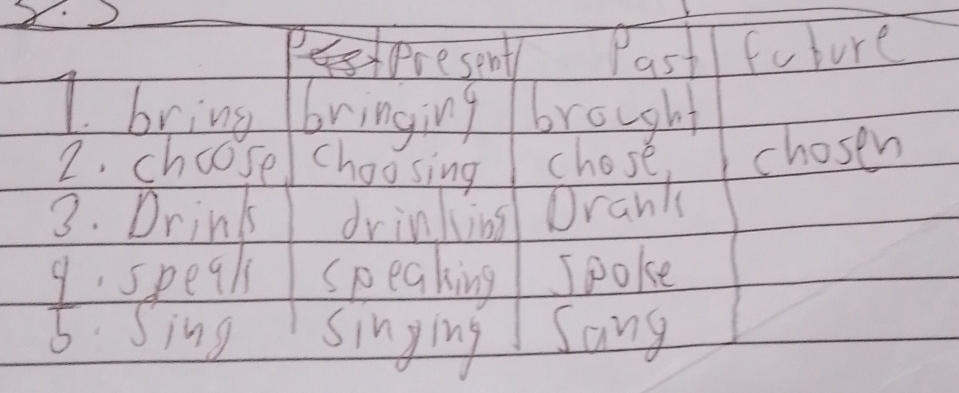 Present Past future
1. bring bringing brought
2. choose choosing chose chosen
3. Drink drinking Drank
4. speak speaking spoke
5. Sing singing Sang